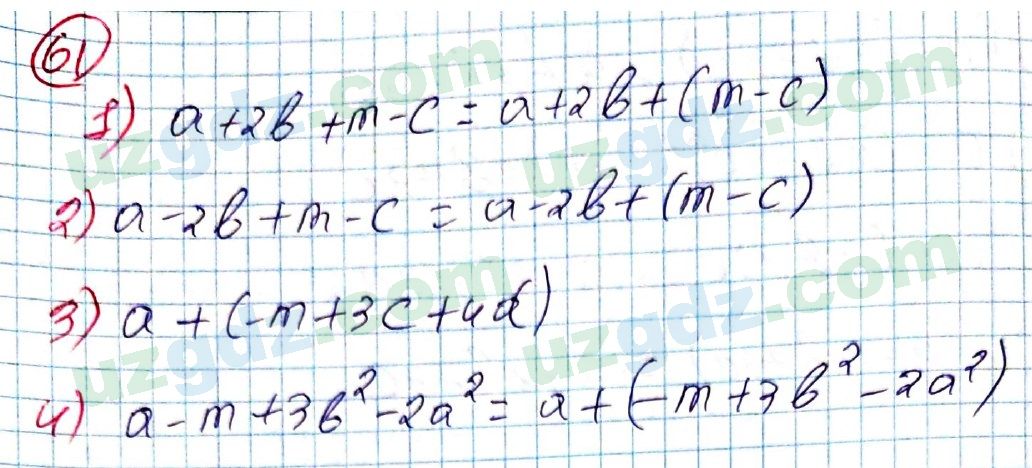 61
1) a+2b+m-c=a+2b+(m-c)
2) a-2b+m-c=a-2b+(m-c)
3) a+(-m+3c+4d)
4) a-m+3b²-2a²=a+(-m+3b²-2a²)
uzgdz.com
uzgdz.com
uzgdz.com
uzgdz.com